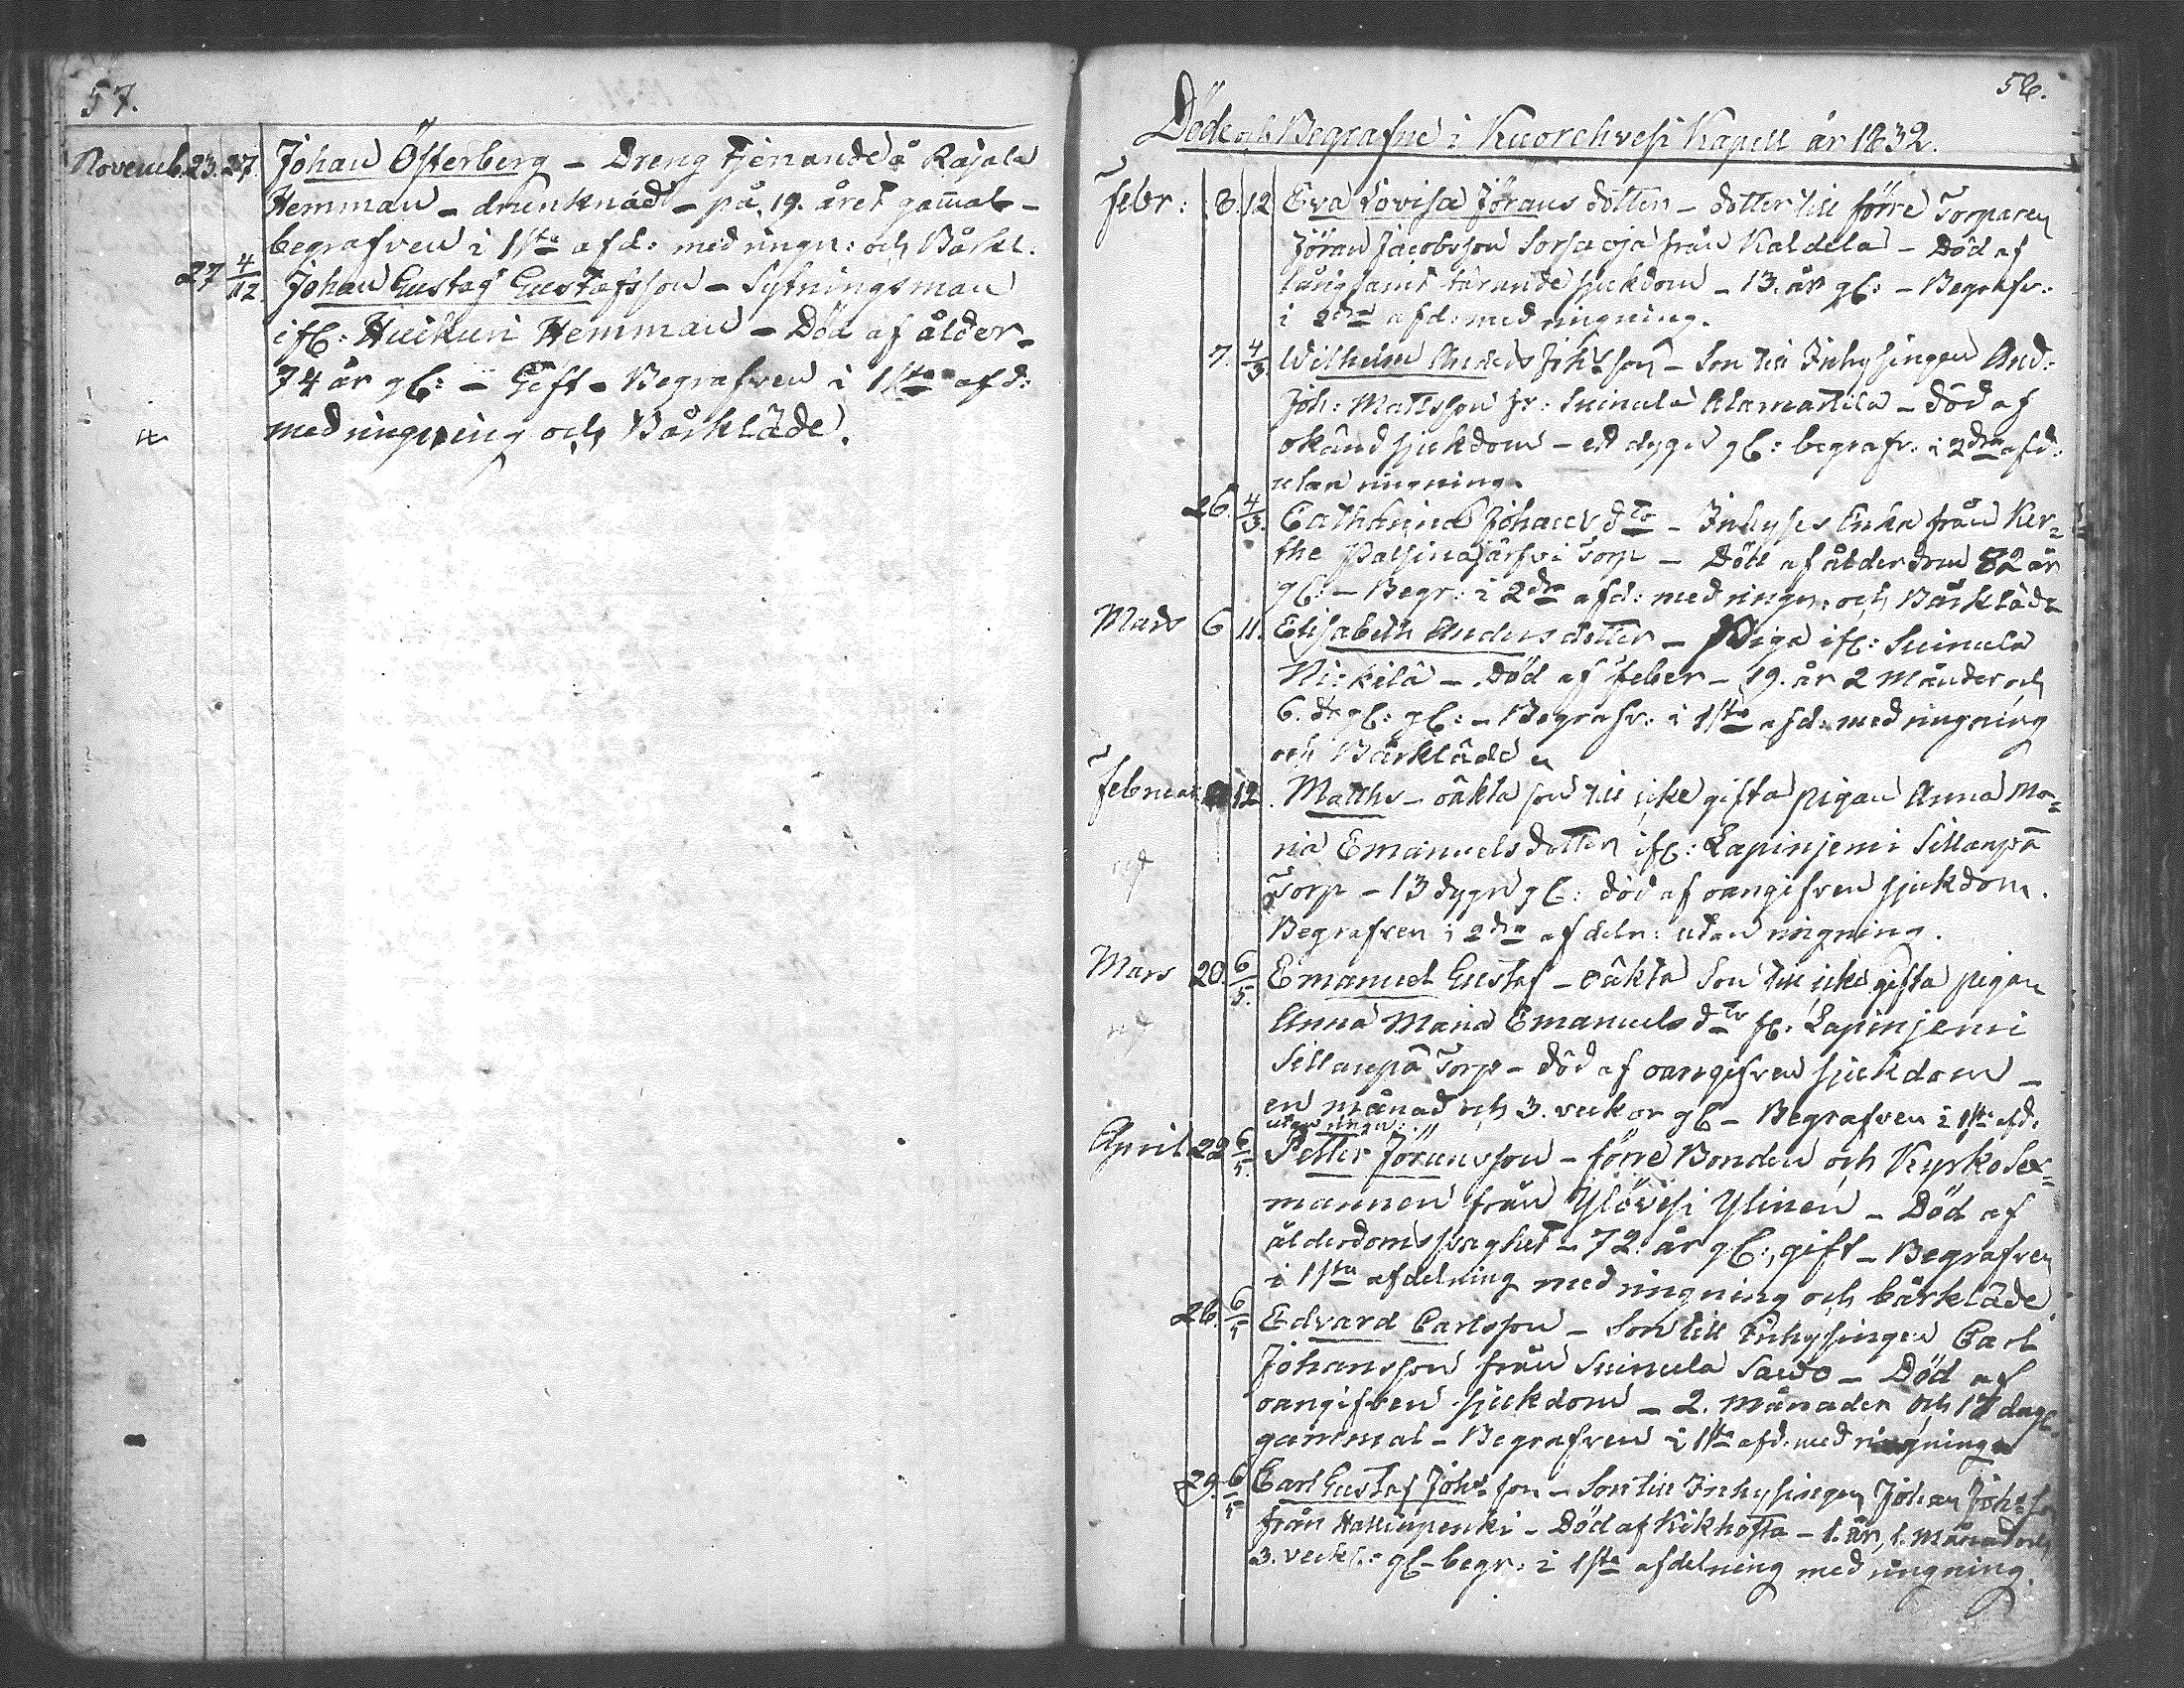 57.
Novemb. 23. 27. Johan Österberg – Dreng tjenande å Rajala
Hemman – drunknad – på 19. året gammal –
begrafven i 1sta afd: med ringn: och Bårkl.
27 4/12 Johan Gustaf Gustafsson – Sytningsman
ifr: Huikuri Hemman – Död af ålder –
74 år gl: – Gift – Begrafven i 1sta afd:
med ringning och Bårkläde.
58.
Döde och Begrafne i Kuorehvesi Kapell år 1832.
Febr: 8. 12 Eva Lovisa Jörans dotter – dotter till förre Torparen
Jöran Jacobsson Sorsaoja från Kaldela – Död af
långsamt tärande sjukdom – 13. år gl: – Begrafv:
i 2dra afd: med ringning.
7. 4/3. Wilhelm Anders Johsson – Son till Inhysingen And:
Joh: Mattsson fr: Suinula Alamattila – död af
okänd sjukdom – ett dygn gl: begrafv: i 2dra afd:
utan ringning.
26. 4/3. Catharina Johans dtr – Inhyses Enka från Ker-
the Patsinajärfvi Torp – Död af ålderdom 82 år
gl: – Begr: i 2dra afd: med ringn: och Bårkläde
Mars 6 11. Elisabeth Andersdotter – Piga ifr: Suinula
Niskilä – Död af feber – 19. år 2 månder och
6. gl: – Begrafv: i 1sta afd: med ringning
och Bårkläde
Februar 12. Matths – oäkta son till icke gifta pigan Anna Ma-
ria Emanuelsdotter ifr: Lapinjemi Sillanpä
Torp – 13 dygn gl: död af oangifven sjukdom.
Begrafven i 2dra afdeln: utan ringning.
Mars 20. 6/5. Emanuel Gustaf – oäkta Son till icke gifta pigan
Anna Maria Emanuels dtr fr: Lapinjemi
Sillanpä Torp – död af oangifven sjukdom –
en månad och 3. veckor gl – Begrafven i 1sta afd.
utan ringn:
April 22 6/5. Petter Jöransson – förre Bonden och Kyrko Sex-
mannen från Ylövesi Ylinen – Död af
ålderdoms svaghet – 72 år gl:, gift – Begrafven
i 1sta afdelning med ringning och bårkläde
26. 6/5 Edvard Carlsson – Son till Inhysingen Carl
Johansson från Suinula Sawo – Död af
oangifven sjukdom – 2. månader och 17 dagr
gammal – Begrafven i 1sta afd. med ringning
29. 6/5 Carl Gustaf Johsson – Son till Inhysingen Johan Johss
från Hallinpenki – Död af Kikhosta – 1. år, 1. månad och
3. veckr: gl – begr: i 1sta afdelning med ringning.